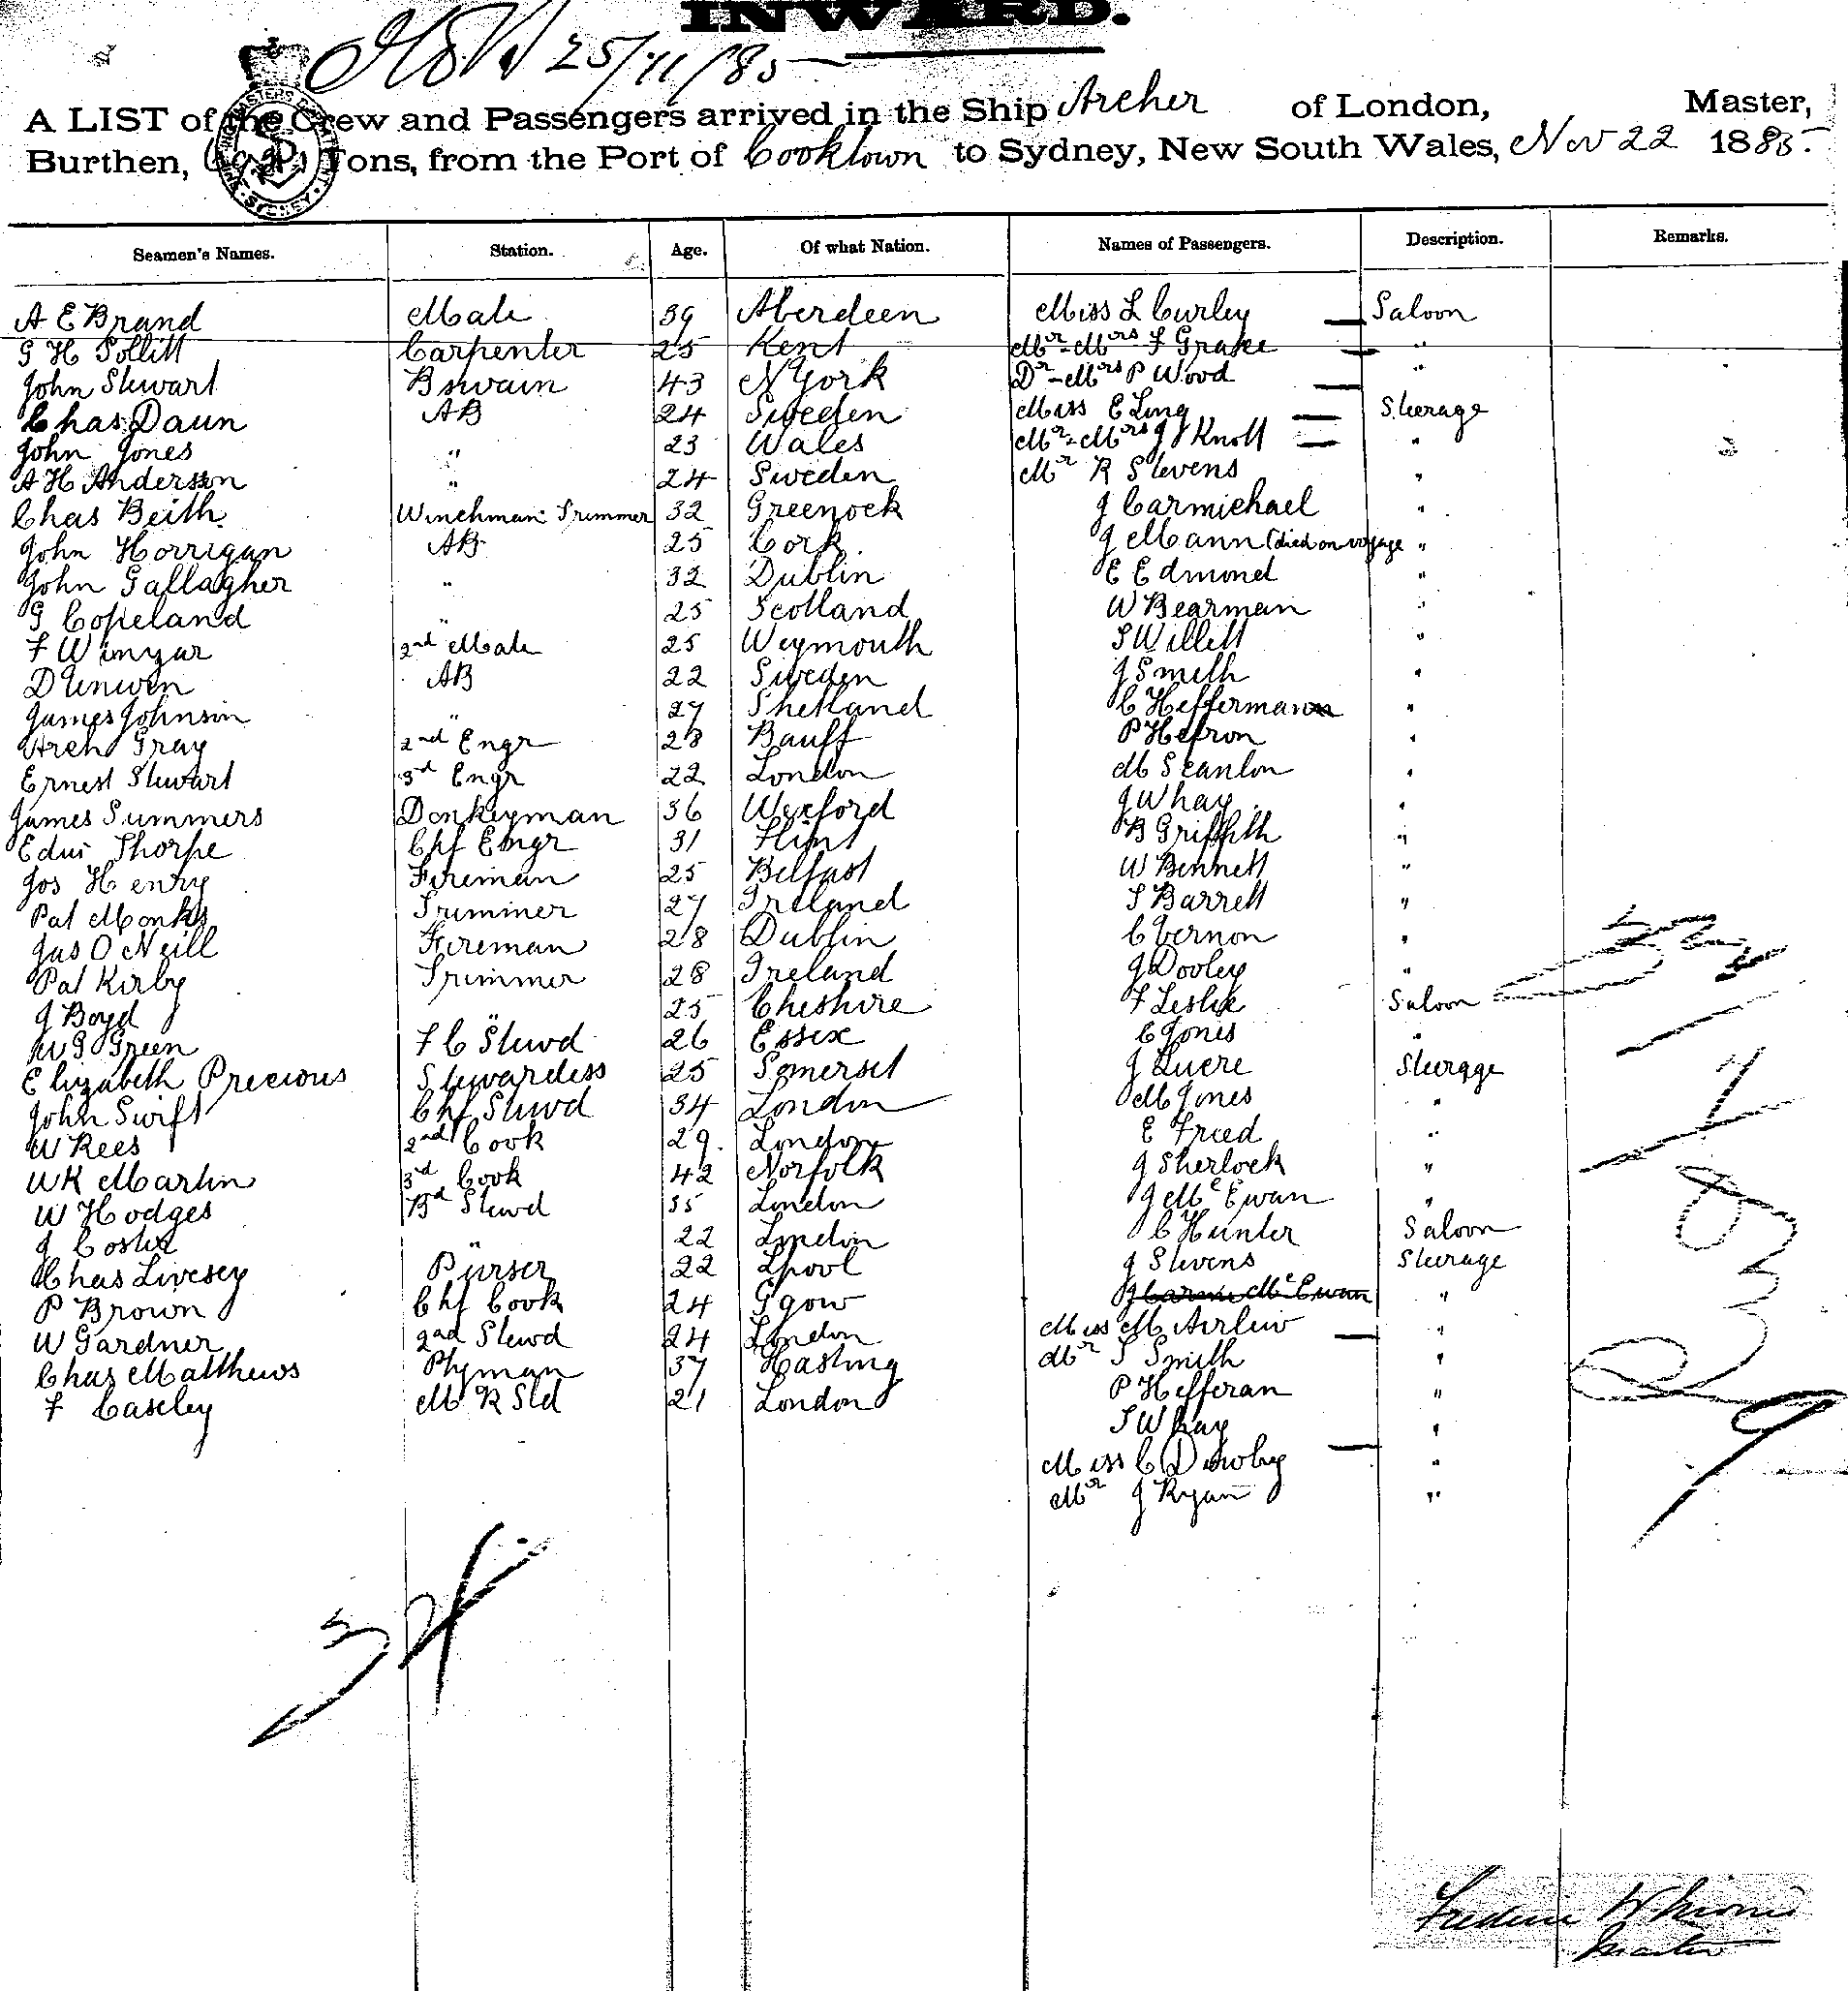 INWARD.
25/11/85
A LIST of the Crew and Passengers arrived in the Ship Archer of London, Master,
Burthen, Tons, from the Port of Cooktown to Sydney, New South Wales, Nov 22 1885.
Seamen's Names. Station. Age. Of what Nation. Names of Passengers. Description. Remarks.
A E Brand Mate 39 Aberdeen Miss L Curley Saloon
G H Pollitt Carpenter 25 Kent Mr - Mrs F Grase "
John Stewart Bswain 43 N York Dr - Mrs P Wood "
Chas Daun AB 24 Sweden Miss E Ling Steerage
John Jones " 23 Wales Mr - Mrs J Knott "
A H Anderson " 24 Sweden Mr R Stevens "
Chas Beith Winchman Trimmer 32 Greenock J Carmichael "
John Horrigan AB 25 Cork J Mann (died on voyage "
John Gallagher " 32 Dublin E Edmond "
G Copeland " 25 Scotland W Bearman "
F Wimyar 2nd Mate 25 Weymouth S Willett "
D Unwin AB 22 Sweden J Smith "
James Johnson " 27 Shetland C Hefferman "
Arch Gray 2nd Engr 28 Banff P Hefron "
Ernest Stewart 3rd Engr 22 London M Scanlon "
James Summers Donkeyman 36 Wexford J Whay "
Edwi Thorpe Chf Engr 31 Flint B Griffith "
Jos Henry Fireman 25 Belfast W Bennett "
Pat Monks Trimmer 27 Ireland S Barrett "
Jas O Neill Fireman 28 Dublin C Vernon "
Pat Kirby Trimmer 28 Ireland J Dooley "
J Boyd " 25 Cheshire F Leslie Saloon
W G Green F C Stewd 26 Essex C Jones "
Elizabeth Precious Stewardess 25 Somerset J Luere Steerage
John Swift Chf Stewd 34 London M Jones "
W Rees 2nd Cook 29 London E Fried "
W K Martin 3rd Cook 42 Norfolk J Sherlock "
W Hodges Bd Stewd 35 London J McEwan "
J Coster " 22 London C Hunter Saloon
Chas Livesey Purser 22 Lpool J Stevens Steerage
P Brown Chf Cook 24 Ggow J Carmi McEwan "
W Gardner 2nd Stewd 24 London Miss M Airlew "
Chas Matthews Ptyman 37 Hasting Mr S Smith "
F Caseley M R Std 21 London P Hefferan "
S Whay "
Miss C Dewby "
Mr J Ryan "
34
Master